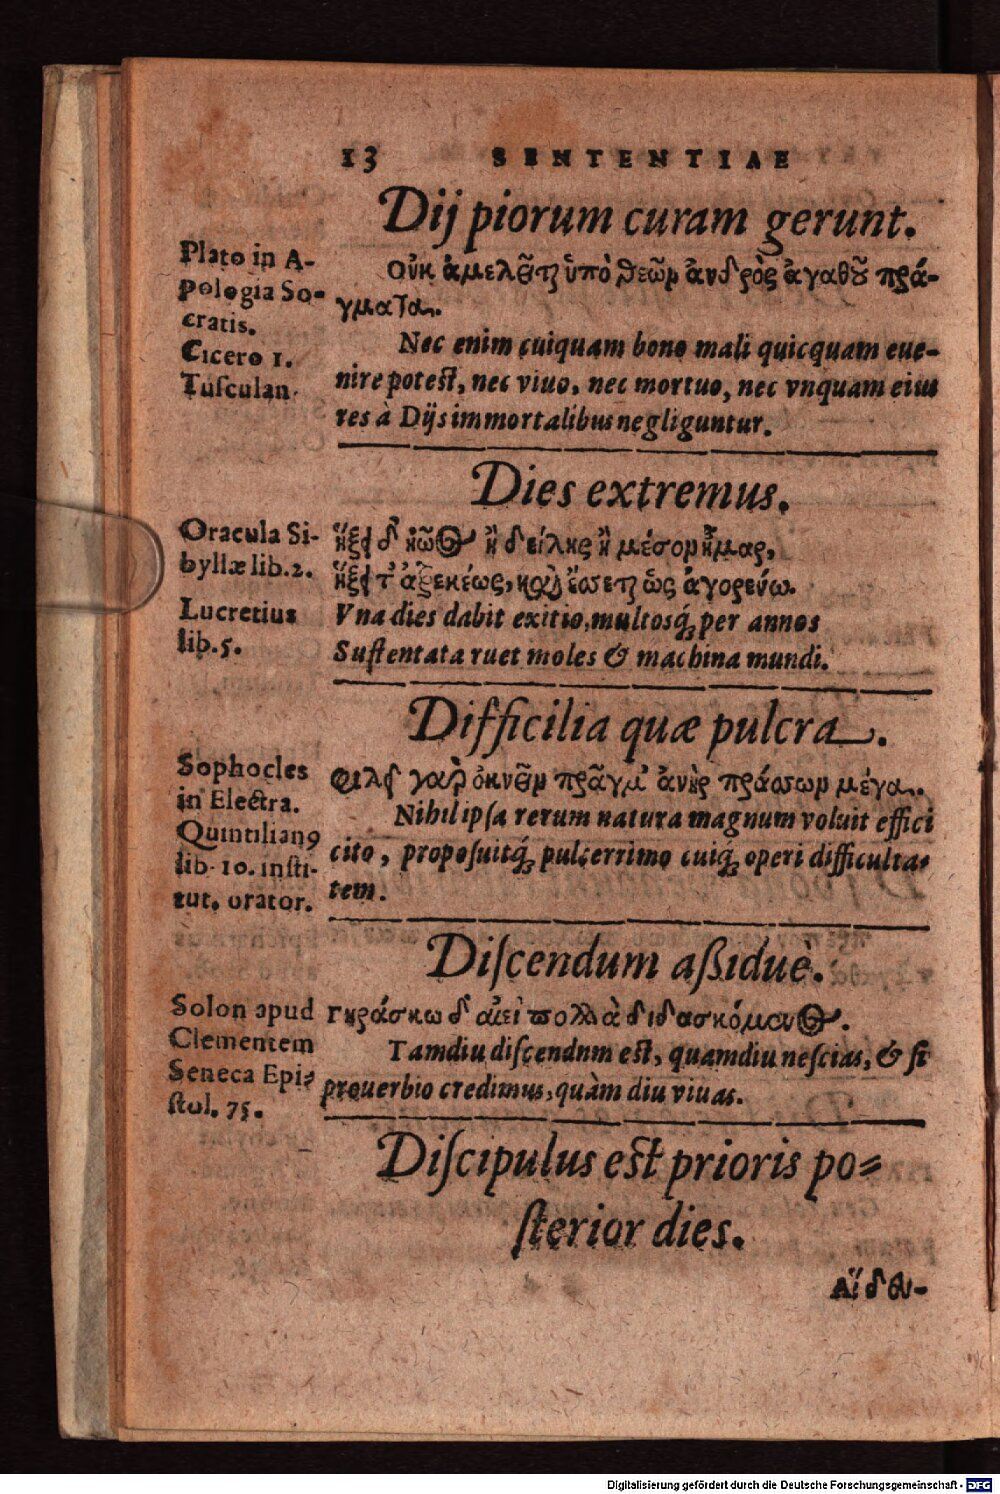 13 SENTENTIAE
Dij piorum curam gerunt.
Plato in A-
pologia So-
cratis.
Cicero 1.
Tusculan.
Οὐκ ἀμελεῖται ὑπὸ θεῶν ἀνδρὸς ἀγαθοῦ πρά-
γματα.
Nec enim cuiquam bono mali quicquam eue-
nire potest, nec viuo, nec mortuo, nec vnquam eius
res à Dijs immortalibus negliguntur.
Dies extremus.
Oracula Si-
byllæ lib. 2.
Lucretius
lib. 5.
ἥξει δ' ἠὼς ἢ δείλης ἢ μέσον ἦμαρ,
ἥξει τ' ἀτρεκέως, καὶ ἔσσεται ὡς ἀγορεύω.
Vna dies dabit exitio, multosq́ per annos
Sustentata ruet moles & machina mundi.
Difficilia quæ pulcra.
Sophocles
in Electra.
Quintilianꝰ
lib. 10. insti-
tut. orator.
φιλεῖ γὰρ ὀκνεῖν πρᾶγμ' ἀνὴρ πράσσων μέγα.
Nihil ipsa rerum natura magnum voluit effici
cito, proposuitq́ pulcerrimo cuiq́ operi difficulta-
tem.
Discendum aßiduè.
Solon apud
Clementem
Seneca Epi-
stol. 75.
Γηράσκω δ' αἰεὶ πολλὰ διδασκόμενος.
Tamdiu discendnm est, quamdiu nescias, & si
prouerbio credimus, quàm diu viuas.
Discipulus est prioris po-
sterior dies.
Αἵ δευ-
Digitalisierung gefördert durch die Deutsche Forschungsgemeinschaft - DFG